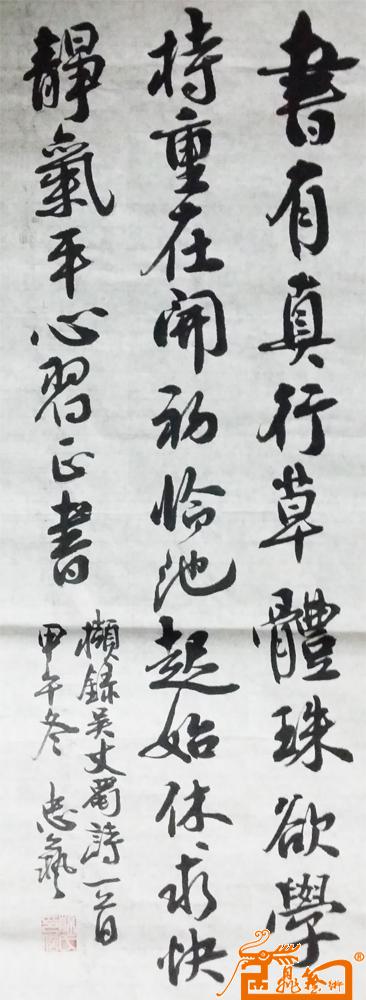 書有真行草體殊欲學
持重在開初臨池起始休求快
靜氣平心習正書
擷錄吴丈蜀詩一首
甲午冬 忠藝